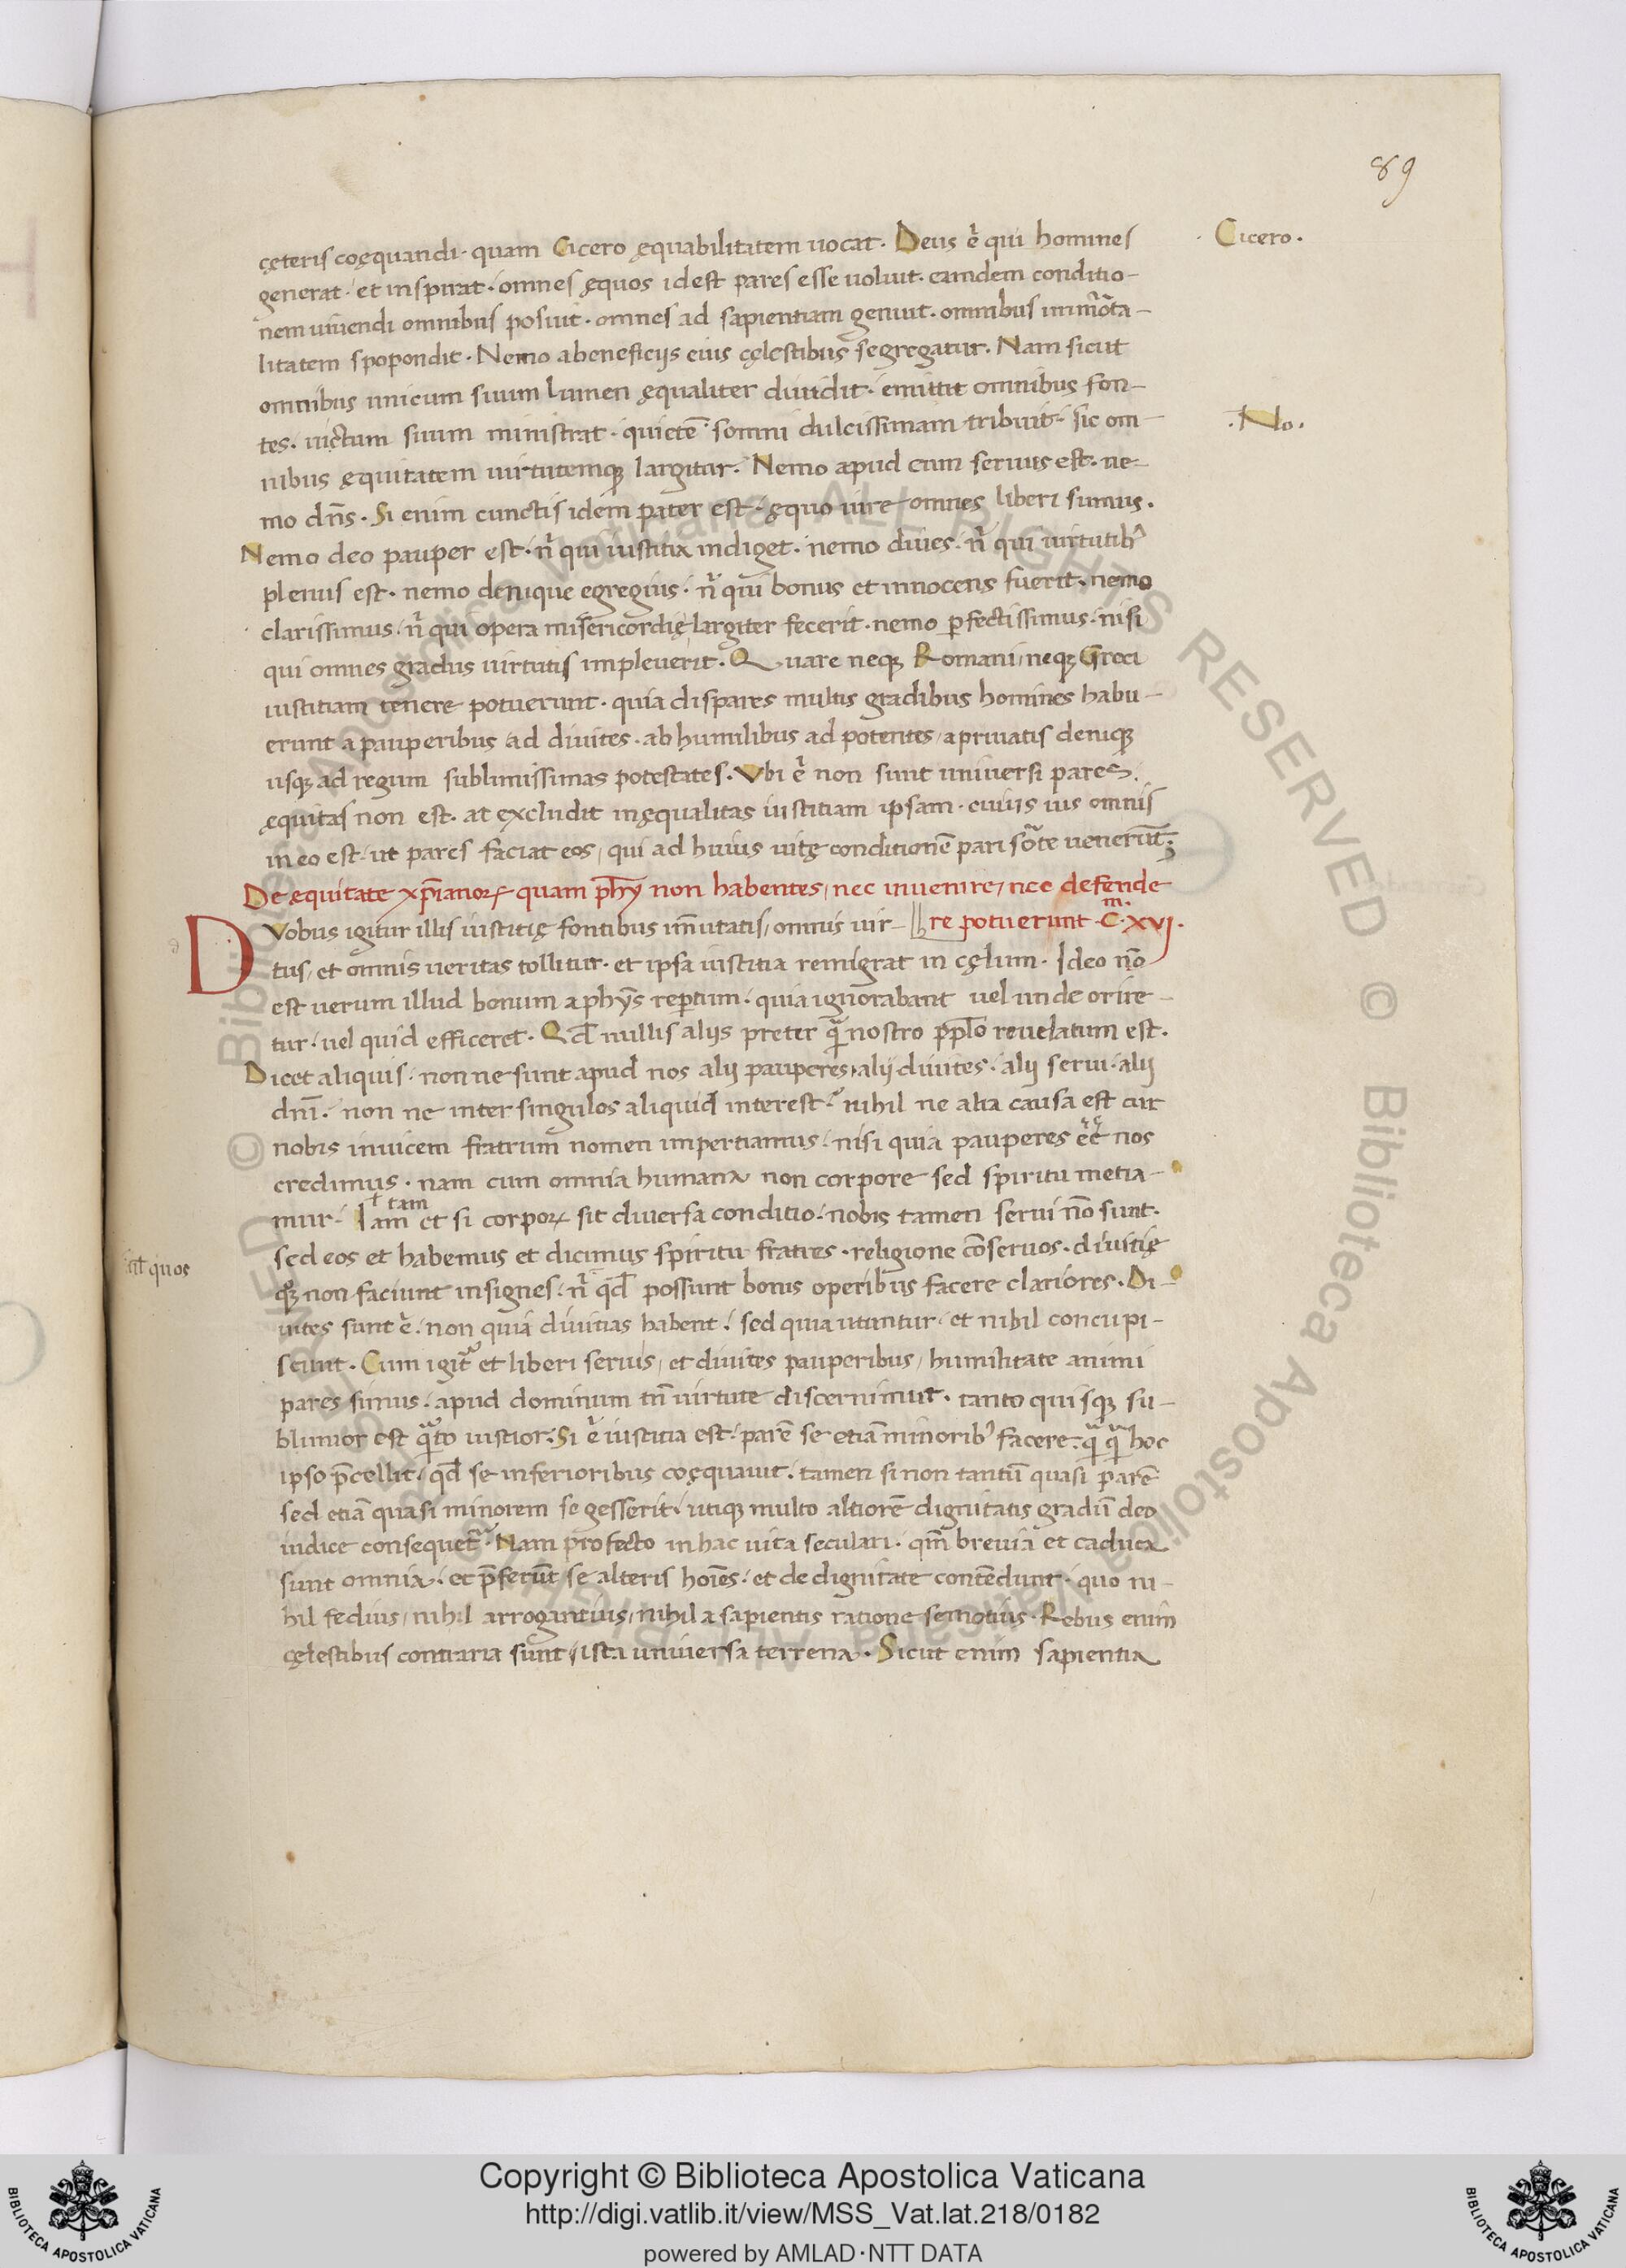 89
çęteris coęquandi · quam Cicero ęquabilitatem uocat. Deus ē qui homines
Cicero.
generat · et inspirat · omnes ęquos idest pares esse uoluit. eamdem conditio-
nem uiuendi omnibus posuit · omnes ad sapientiam genuit · omnibus immortа-
litatem spopondit · Nemo a beneficijs eius cęlestibus segregatur. Nam sicut
omnibus unicum suum lumen ęqualiter diuidit · emittit omnibus fon-
tes · uictum suum ministrat · quietē somni dulcissimam tribuit · sic om-
.No.
nibus ęquitatem uirtutemq; largitur. Nemo apud eum seruus est · ne-
mo dn̄s. Si enim cunctis idem pater est · ęquo iure omnes liberi sumus.
Nemo deo pauper est · nͥ qui iustitia indiget · nemo diues · nͥ qui uirtutib;
plenus est · nemo denique egregius · nͥ qui bonus et innocens fuerit · nemo
clarissimus · nͥ qui opera misericordię largiter fecerit · nemo ꝑfectissimus · nisi
qui omnes gradus uirtutis impleuerit. Quare neq; Romani / neq; Greci
iustitiam tenere potuerunt · quia dispares multis gradibus homines habu-
erunt a pauperibus ad diuites · ab humilibus ad potentes / a priuatis deniq;
usq; ad regum sublimissimas potestates. Vbi ē non sunt uniuersi pares ·
ęquitas non est · at excludit inęqualitas iustitiam ipsam · cuius uis omnis
in eo est · ut pares faciat eos / qui ad huius uitę conditionē pari sorte uenerūt;
De ęquitate xp̄ianoꝝ quam ph̄y non habentes / nec inuenire / nec defende
re potuerunt · C.m XVI.
DVobus igitur illis iustitię fontibus īmutatis / omnis uir-
tus / et omnis ueritas tollitur · et ipsa iustitia remigrat in cęlum. Ideo nō
est uerum illud bonum a ph̄ys reꝑtum · quia ignorabant uel unde orire-
tur · uel quid efficeret. Qd̄ nullis alijs preter qͣ nostro pplo reuelatum est.
Dicet aliquis · non ne sunt apud nos alij pauperes / alij diuites · alij serui · alij
dn̄i · non ne inter singulos aliquid interest? nihil ne alia causa est cur
nobis inuicem fratrum nomen impertiamus · nisi quia pauperes eē nos
credimus · nam cum omnia humana non corpore sed spiritu metia-
tam
mur · Iam et si corpoꝝ sit diuersa conditio · nobis tamen serui nō sunt ·
sed eos et habemus et dicimus spiritu fratres · religione cōseruos · diuitię
quos
q; non faciunt insignes · nͥ qd̄ possunt bonis operibus facere clariores. Di-
uites sunt ē · non quia diuitias habent · sed quia utuntur · et nihil concupi-
scunt. Cum igit᷑ et liberi seruis / et diuites pauperibus / humilitate animi
pares simus · apud dominum tn̄ uirtute discernimur · tanto quisq; su-
blimior est qͣto iustior · Si ē iustitia est · parē se etiā minorib; facere · qͣ qͣ hoc
ipso p̄cellit · qd̄ se inferioribus coęquauit · tamen si non tantū quasi parē
sed etiā quasi minorem se gesserit · utiq; multo altiorē dignitatis gradū deo
iudice consequet᷑ · Nam profecto in hac uita seculari · qm̄ breuia et caduca
sunt omnia · et p̄ferūt se alteris hoīes · et de dignitate contēdunt · quo ni-
hil fedius / nihil arrogantius / nihil a sapientis ratione semotius · Rebus enim
cęlestibus contraria sunt ista uniuersa terrena. Sicut enim sapientia
© Biblioteca Apostolica Vaticana ALL RIGHTS RESERVED © Biblioteca Apostolica Vaticana ALL RIGHTS RESERVED
Copyright © Biblioteca Apostolica Vaticana
http://digi.vatlib.it/view/MSS_Vat.lat.218/0182
powered by AMLAD·NTT DATA
BIBLIOTECA APOSTOLICA VATICANA
BIBLIOTECA APOSTOLICA VATICANA